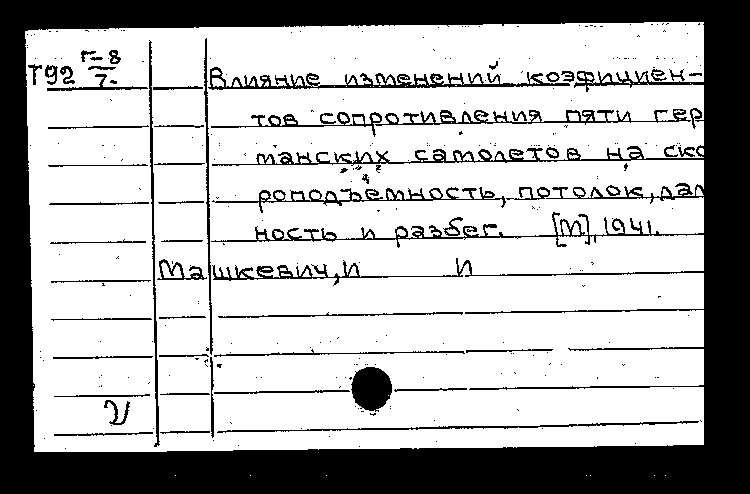 Т92 Г-8/7-
Влияние изменений коэфициен-
тов сопротивления пяти гер
манских самолетов на ско
роподъемность, потолок, дал
ность и разбег. [М], 1941.
Машкевич, И И